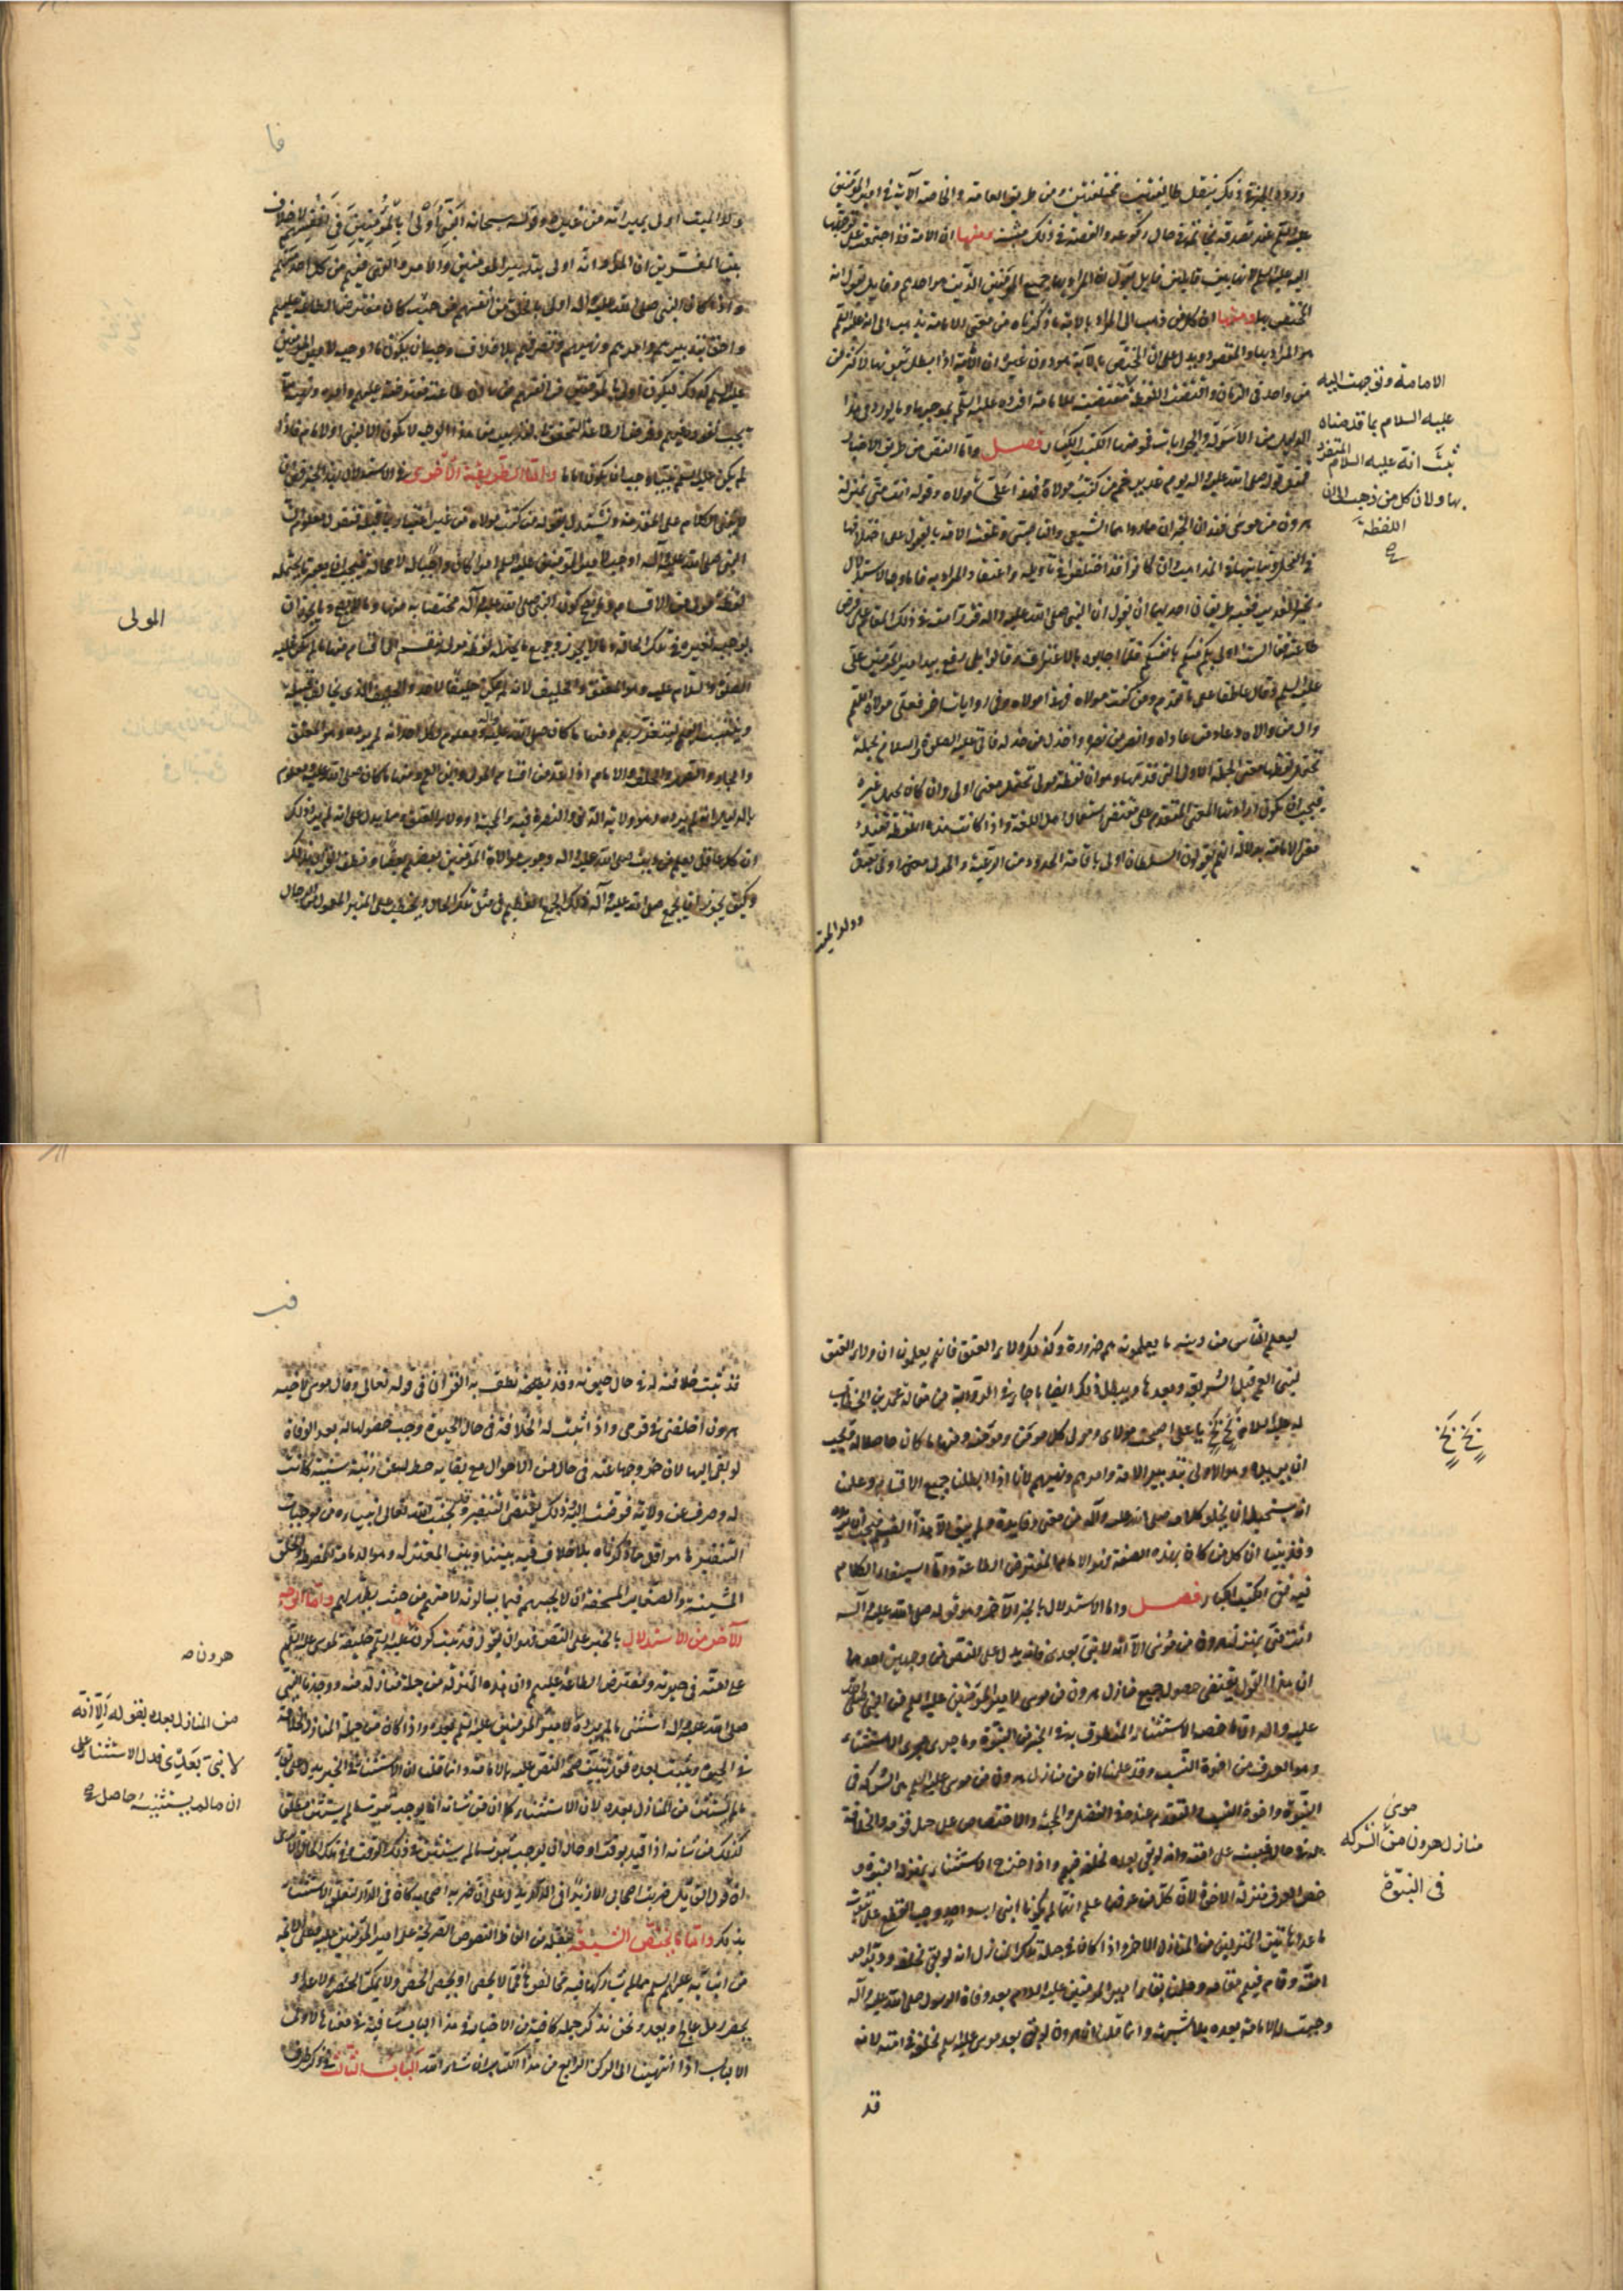 ورود الخبر في ذلك بنقل طايفتين مختلفتين ومن طريق العامة والخاصة الآية في امير المؤمنين
عليه السلم عند تصدقه بخاتمه في حال ركوعه والقصة في ذلك مشهورة ومنها ان الامة قد اجتمعت على توجهها
اليه عليه السلم لانها بين قايلين قايل يقول ان المراد بها جميع المؤمنين الذين هو احدهم وقايل يقول انه
المختص بها ومنها ان كل من ذهب الى ان المراد بالآية ما ذكرناه من معنى الامامة يذهب الى انه عليه السلم
هو المراد بها والمقصود ويدل على ان المختص بالآية هو دون غيره ان الآية اذا بطل ثبوتها لاكثر من
من واحد في الزمان واقتضت اللفظة مقتضية للامامة افرده عليه السلم بموجبها وما يورد في هذا
الدليل من الاسولة والجوابات فموضعها الكتب الكبار فصل واما النص من طريق الاخبار
فمثل قوله صلى الله عليه واله يوم غدير خم من كنت مولاه فهذا علي مولاه وقوله انت مني بمنزلة
هرون من موسى فهذان الخبران مما رواهما الشيعي والناصبي وتلقته الامة بالقبول على اختلافها
في النحل وتباينها في المذاهب وان كانوا قد اختلفوا في تأويله واعتقاد المراد به فاما وجه الاستدلال
بخبر الغدير ففيه طريقان احدهما ان نقول ان النبي صلى الله عليه واله قرر امته في ذلك المقام على فرض
طاعته فقال الست اولى بكم منكم بانفسكم فلما اجابوه بالاعتراف وقالوا بلى رفع بيد امير المؤمنين علي
عليه السلم وقال عاطفا على ما تقدم ومن كنت مولاه فهذا مولاه وفي روايات اخر فعلي مولاه اللهم
وال من والاه وعاد من عاداه وانصر من نصره واخذل من خذله فاتى عليه الصلوة والسلام بجملة
تحتمل لفظها معنى الجملة الاولى التي قدمها وهو ان لفظة مولى تحتمل معنى اولى وان كان يحتمل غيره
فيجب ان يكون اراد بها المعنى المتقدم على مقتضى استعمال اهل اللغة واذا كانت هذه اللفظة تفيد
معنى الامامة بدلالة انهم يقولون السلطان اولى باقامة الحدود من الرعية والمولى اولى بعبده
وولد الميت
الامامة وتوجهت اليه
عليه السلام بما قدمناه
ثبت انه عليه السلام المتفرد
بها ولان كل من ذهب الى ان
اللفظة
صح
فا
وولد الميت اولى بميراثه من غيره وقوله سبحانه النبي اولى بالمؤمنين من انفسهم لا خلاف
بين المفسرين ان المراد انه اولى بتدبير المؤمنين والامر والنهي فيهم من كل احد منهم
واذا كان النبي صلى الله عليه واله اولى بالخلق من انفسهم من حيث كان مفترض الطاعة عليهم
واحق بتدبيرهم وامرهم ونهيهم وتصرفهم بلا خلاف وجب ان يكون ما اوجبه لامير المؤمنين
عليه السلم كذلك فيكون اولى بالمؤمنين من انفسهم من حيث ان طاعته مفترضة عليهم وامره ونهيه مما
يجب نفوذه فيهم وفرض الطاعة والتحقق بالتدبير من هذا الوجه لا يكون الا لنبي او لامام فاذا
لم يكن عليه السلم نبيا وجب ان يكون اماما واما الطريقة الاخرى في الاستدلال بهذا الخبر فهي ان
لا نبني الكلام على المقدمة ونستدل بقوله من كنت مولاه من غير اعتبار ما قبله فنقول معلوم ان
النبي صلى الله عليه واله اوجب لامير المؤمنين عليه السلم امرا كان واجبا له لا محالة فيجب ان يعتبر ما يحتمله
لفظة مولى من الاقسام وما يصح كون النبي صلى الله عليه واله مختصا به منها وما لا يصح وما يجوز ان
يوجبه لغيره في تلك الحالة وما لا يجوز وجميع ما يحتمله لفظة مولى ينقسم الى اقسام منها ما لم يكن عليه
الصلوة والسلام عليه وهو المعتق والحليف لانه لم يكن حليفا لاحد والحليف الذي يخالف قبيلة
وينتسب اليهم ليتعزز بهم ومنها ما كان صلى الله عليه واله ومعلوم لكل احد انه لم يرده وهو المعتق
والجار والصهر والحليف والامام اذا عد من اقسام المولى وابن العم ومنها ما كان صلى الله عليه معلوم
بالدليل انه لم يرده وهو ولاية الدين والنصرة فيه والمحبة او ولاء العتق ومما يدل على انه لم يرد ذلك
ان كل عاقل يعلم من دينه صلى الله عليه واله وجوب موالاة المؤمنين بعضهم بعضا ونطق القرآن بذلك
وكيف يجوز ان يجمع صلى الله عليه واله ذلك الجمع العظيم في مثل تلك الحال ويخطب على المنبر المعمول من الرحال
المولى
ليعلم الناس من دينه ما يعلمونه هم ضرورة وكذلك ولاء العتق فانهم يعلمون ان ولاء العتق
لبني العم قبل الشريعة وبعدها ويبطل ذلك ايضا ما جاء في الرواية من مقالة عمر بن الخطاب
له عليه السلام بخ بخ يا علي اصبحت مولاي ومولى كل مؤمن ومؤمنة ومنها ما كان حاصلا له فيجب
ان يريده وهو الاولى بتدبير الامة وامرهم ونهيهم لانا اذا ابطلنا جميع الاقسام وعلمنا
انه يستحيل ان يخلو كلامه صلى الله عليه واله من معنى وفايدة ولم يبق الا هذا القسم فيجب ان يريده
وقد بينا ان كل من كان بهذه الصفة فهو الامام المفترض الطاعة واما استيفاء الكلام
فيه ففي الكتب الكبار فصل واما الاستدلال بالخبر الآخر وهو قوله صلى الله عليه وآله
انت مني بمنزلة هرون من موسى الا انه لا نبي بعدي فانه يدل على النص من وجهين احدهما
ان هذا القول يقتضي حصول جميع منازل هرون من موسى لامير المؤمنين عليه السلم من النبي صلى الله
عليه واله الا ما خصه الاستثناء المنطوق به في الخبر من النبوة وما جرى مجرى الاستثناء
وهو العرف من اخوة النسب وقد علمنا ان من منازل هرون من موسى عليه السلم هي الشركة في
النبوة واخوة النسب والتقدم عنده في الفضل والمحبة والاختصاص على جميع قومه والخلافة
له في حال غيبته على امته وانه لو بقي بعده لخلفه فيهم واذا خرج الاستثناء بمنزلة النبوة و
خص العرف منزلة الاخوة لان كل من عرفهما علم انهما لم يكونا ابني اب واحد وجب القطع على ثبوت
ما عدا هاتين المنزلتين من المنازل الاخر واذا كان في جملة تلك المنازل انه لو بقي لخلفه ودبر امر
امته وقام فيهم مقامه وعلمنا بقاء امير المؤمنين عليه السلام بعد وفاة الرسول صلى الله عليه وآله
وجبت له الامامة بعده بلا شبهة وانما قلنا ان هرون لو بقي بعد موسى عليه السلم لخلفه في امته لانه
قد
بخ بخ
موسى
منازل هرون من الشركة
في النبوة
فب
قد ثبت خلافته له في حال حيوته وقد نطق به القرآن في قوله تعالى وقال موسى لاخيه
هرون اخلفني في قومي واذا ثبت له الخلافة في حال الحيوة وجب حصولها له بعد الوفاة
لو بقي اليها لان خروجها عنه في حال من الاحوال مع بقايه حط له عن رتبة سنية كانت
له وصرف عن ولاية فوضت اليه وذلك يقتضي التنفير وقد يجنب الله تعالى انبياءه من موجبات
التنفير ما هو اقل مما ذكرناه بلا خلاف فيه بيننا وبين المعتزلة وهو الدمامة المفرطة والخلق
المشينة والصغاير المسخفة وان لا يجيبهم فيما يسألونه لامتهم من حيث يظهر لهم واما الوجه
الآخر من الاستدلال بالخبر على النص فهو ان نقول قد ثبت كون عليه السلم خليفة لموسى عليه السلم
على امته في حيوته ومفترض الطاعة عليهم وان هذه المنزلة من جملة منازله منه ووجدنا النبي
صلى الله عليه واله استثنى ما لم يرده لامير المؤمنين عليه السلم بعده واذا كان من جملة المنازل الخلافة
في الحيوة وثبتت بعده فقد تبين صحة النص عليه بالامامة وانما قلنا ان الاستثناء في الخبر يدل على بقاء
ما لم يستثن من المنازل بعده لان الاستثناء كما ان من شأنه اذا اطلق يوجب ثبوت ما لم يستثن مطلقا
كذلك من شأنه اذا قيد بوقت او حال ان يوجب ثبوت ما لم يستثن في ذلك الوقت وفي تلك الحال
ان قول القايل ضربت اصحابي الا زيدا في الدار يدل على ان ضربه اصحابه كان في الدار لتعلق الاستثناء
بذلك واما ما يختص الشيعة بنقله من الفاظ النصوص الصريحة على امير المؤمنين عليه وعلى الايمة
من ابنايه عليهم السلم مما لم يشاركها فيه مخالفوها فمما لا يحصى او يحصى الحصى ولا يمكن الحصر ولا عد و
يحصر رمل عالج ويعد ونحن نذكر جملة كافية من الاخبار في هذا الباب شافية في معناها لاولى
الالباب اذا انتهينا الى الركن الرابع من هذا الكتاب ان شاء الله الباب الثالث في ذكر طرف
هرون صح
من المنازل بعده بقوله الا انه
لا نبي بعدي فدل الاستثناء على
ان مالم يستثنيه حاصل صح